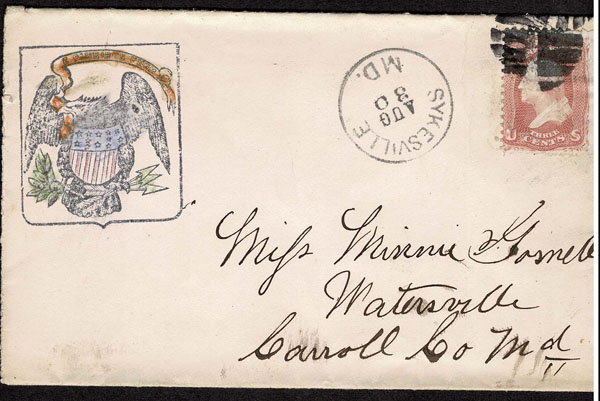 SYKESVILLE
MD.
AUG
30
U S
THREE
CENTS
Miss Minnie Gosnell
Watersville
Carroll Co Md